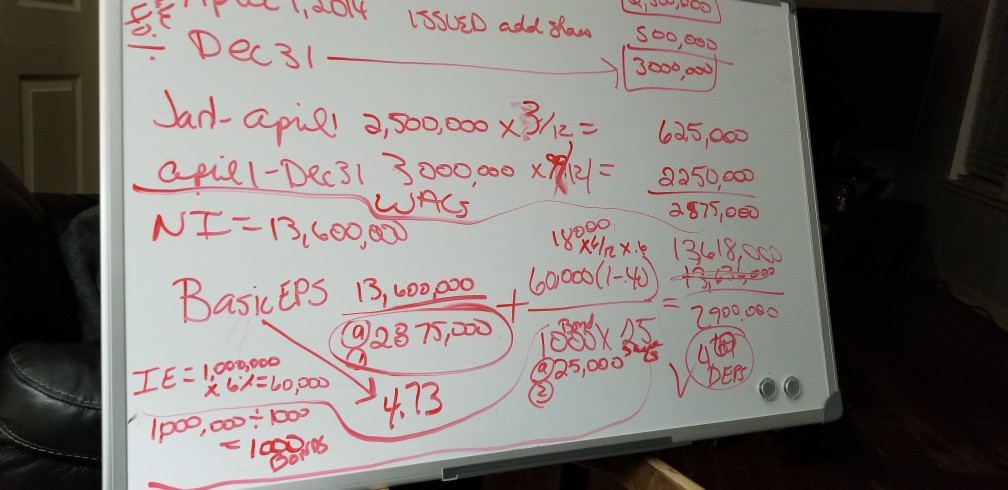 April 1, 2014 ISSUED add shares
500,000
÷ Dec 31 → 3000,000
Jan1- april1 2,500,000 x 3/12 = 625,000
april 1-Dec31 3000,000 x 9/12 = 2250,000
WACS 2875,000
NI = 13,600,000
18000
x 6/12 x .6
Basic EPS 13,600,000 + 60,000(1-.40) = 13,618,000
(a) 2875,000 2900,000
①
1000 Bond x 25
(a) 25,000
②
4.73
DEPS
IE = 1,000,000
x 6% = 60,000
1,000,000 ÷ 1000
= 1000
Bonds